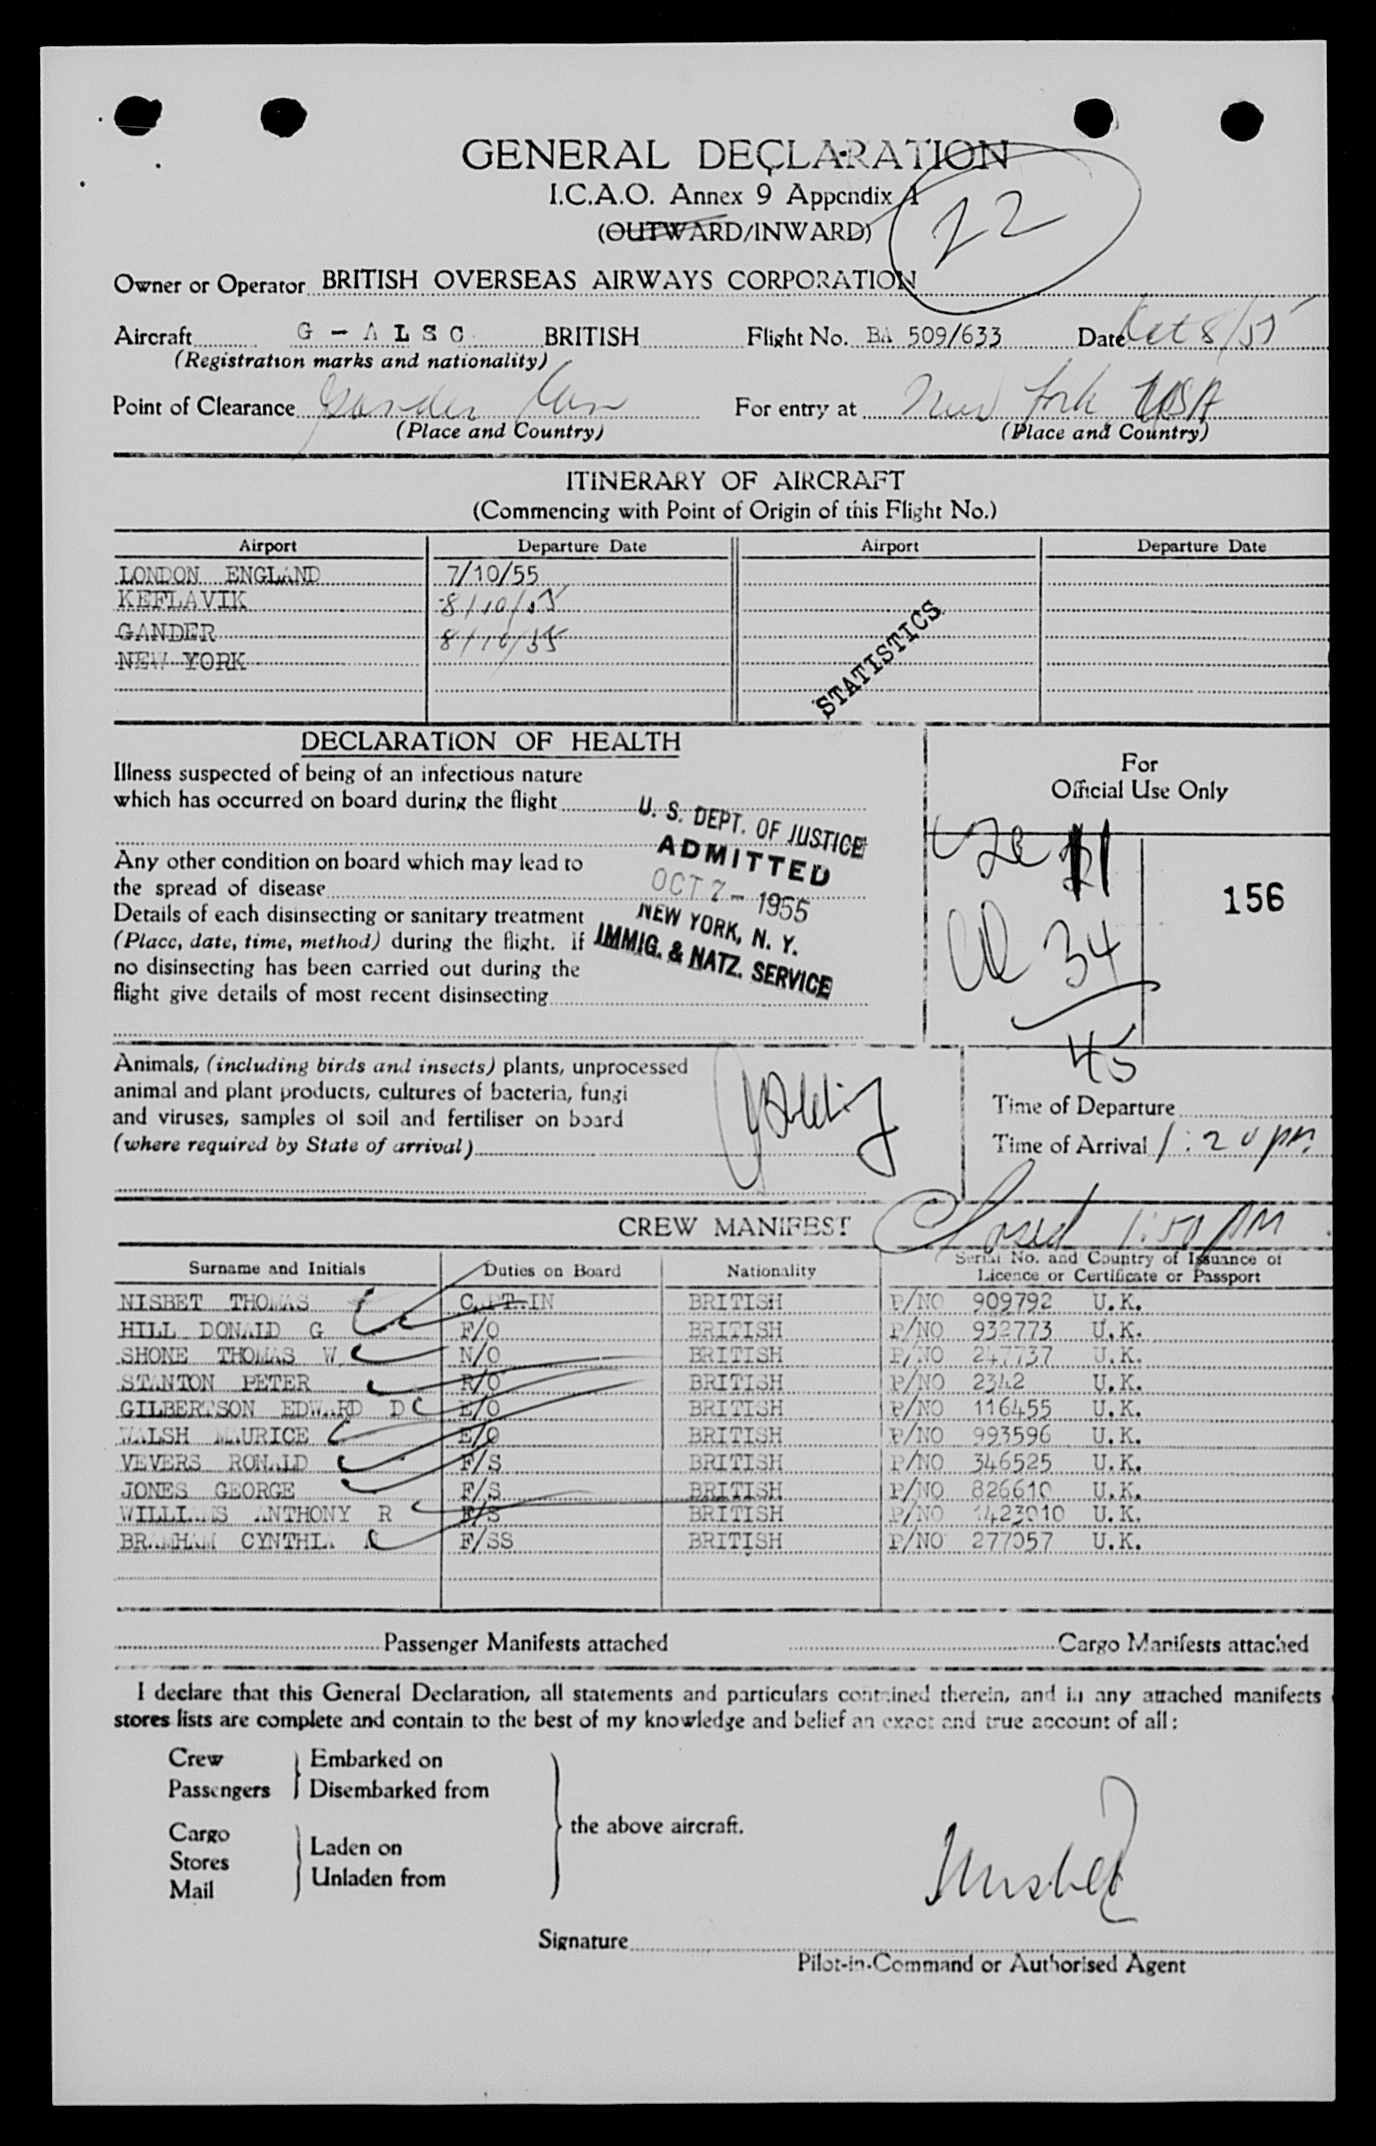 GENERAL DECLARATION
I.C.A.O. Annex 9 Appendix 1
(OUTWARD/INWARD)
22
Owner or Operator BRITISH OVERSEAS AIRWAYS CORPORATION
Aircraft G - A L S C BRITISH Flight No. BA 509/633 Date Oct 8/55
(Registration marks and nationality)
Point of Clearance Gander Can For entry at New York USA
(Place and Country) (Place and Country)
ITINERARY OF AIRCRAFT
(Commencing with Point of Origin of this Flight No.)
Airport Departure Date Airport Departure Date
LONDON ENGLAND 7/10/55
KEFLAVIK 8/10/55
GANDER 8/10/55
NEW YORK
STATISTICS
DECLARATION OF HEALTH
For
Official Use Only
Illness suspected of being of an infectious nature
which has occurred on board during the flight
Any other condition on board which may lead to
the spread of disease
Details of each disinsecting or sanitary treatment
(Place, date, time, method) during the flight. If
no disinsecting has been carried out during the
flight give details of most recent disinsecting
U. S. DEPT. OF JUSTICE
ADMITTED
OCT 7 - 1955
NEW YORK, N. Y.
IMMIG. & NATZ. SERVICE
11
156
34
45
Animals, (including birds and insects) plants, unprocessed
animal and plant products, cultures of bacteria, fungi
and viruses, samples of soil and fertiliser on board
(where required by State of arrival)
Time of Departure
Time of Arrival 1:20 pm
CREW MANIFEST
Closed 1:50 PM
Surname and Initials Duties on Board Nationality Serial No. and Country of Issuance of
Licence or Certificate or Passport
NISBET THOMAS CAPTAIN BRITISH P/NO 909792 U.K.
HILL DONALD G F/O BRITISH P/NO 932773 U.K.
SHONE THOMAS W. N/O BRITISH P/NO 247737 U.K.
STANTON PETER R/O BRITISH P/NO 2342 U.K.
GILBERTSON EDWARD D E/O BRITISH P/NO 116455 U.K.
WALSH MAURICE E/O BRITISH P/NO 993596 U.K.
VEVERS RONALD F/S BRITISH P/NO 346525 U.K.
JONES GEORGE F/S BRITISH P/NO 826610 U.K.
WILLIAMS ANTHONY R F/S BRITISH P/NO 1423010 U.K.
BRAMHAM CYNTHIA F/SS BRITISH P/NO 277057 U.K.
Passenger Manifests attached Cargo Manifests attached
I declare that this General Declaration, all statements and particulars contained therein, and in any attached manifests
stores lists are complete and contain to the best of my knowledge and belief an exact and true account of all:
Crew Embarked on
Passengers Disembarked from
the above aircraft.
Cargo
Stores Laden on
Mail Unladen from
Nisbet
Signature
Pilot-in-Command or Authorised Agent